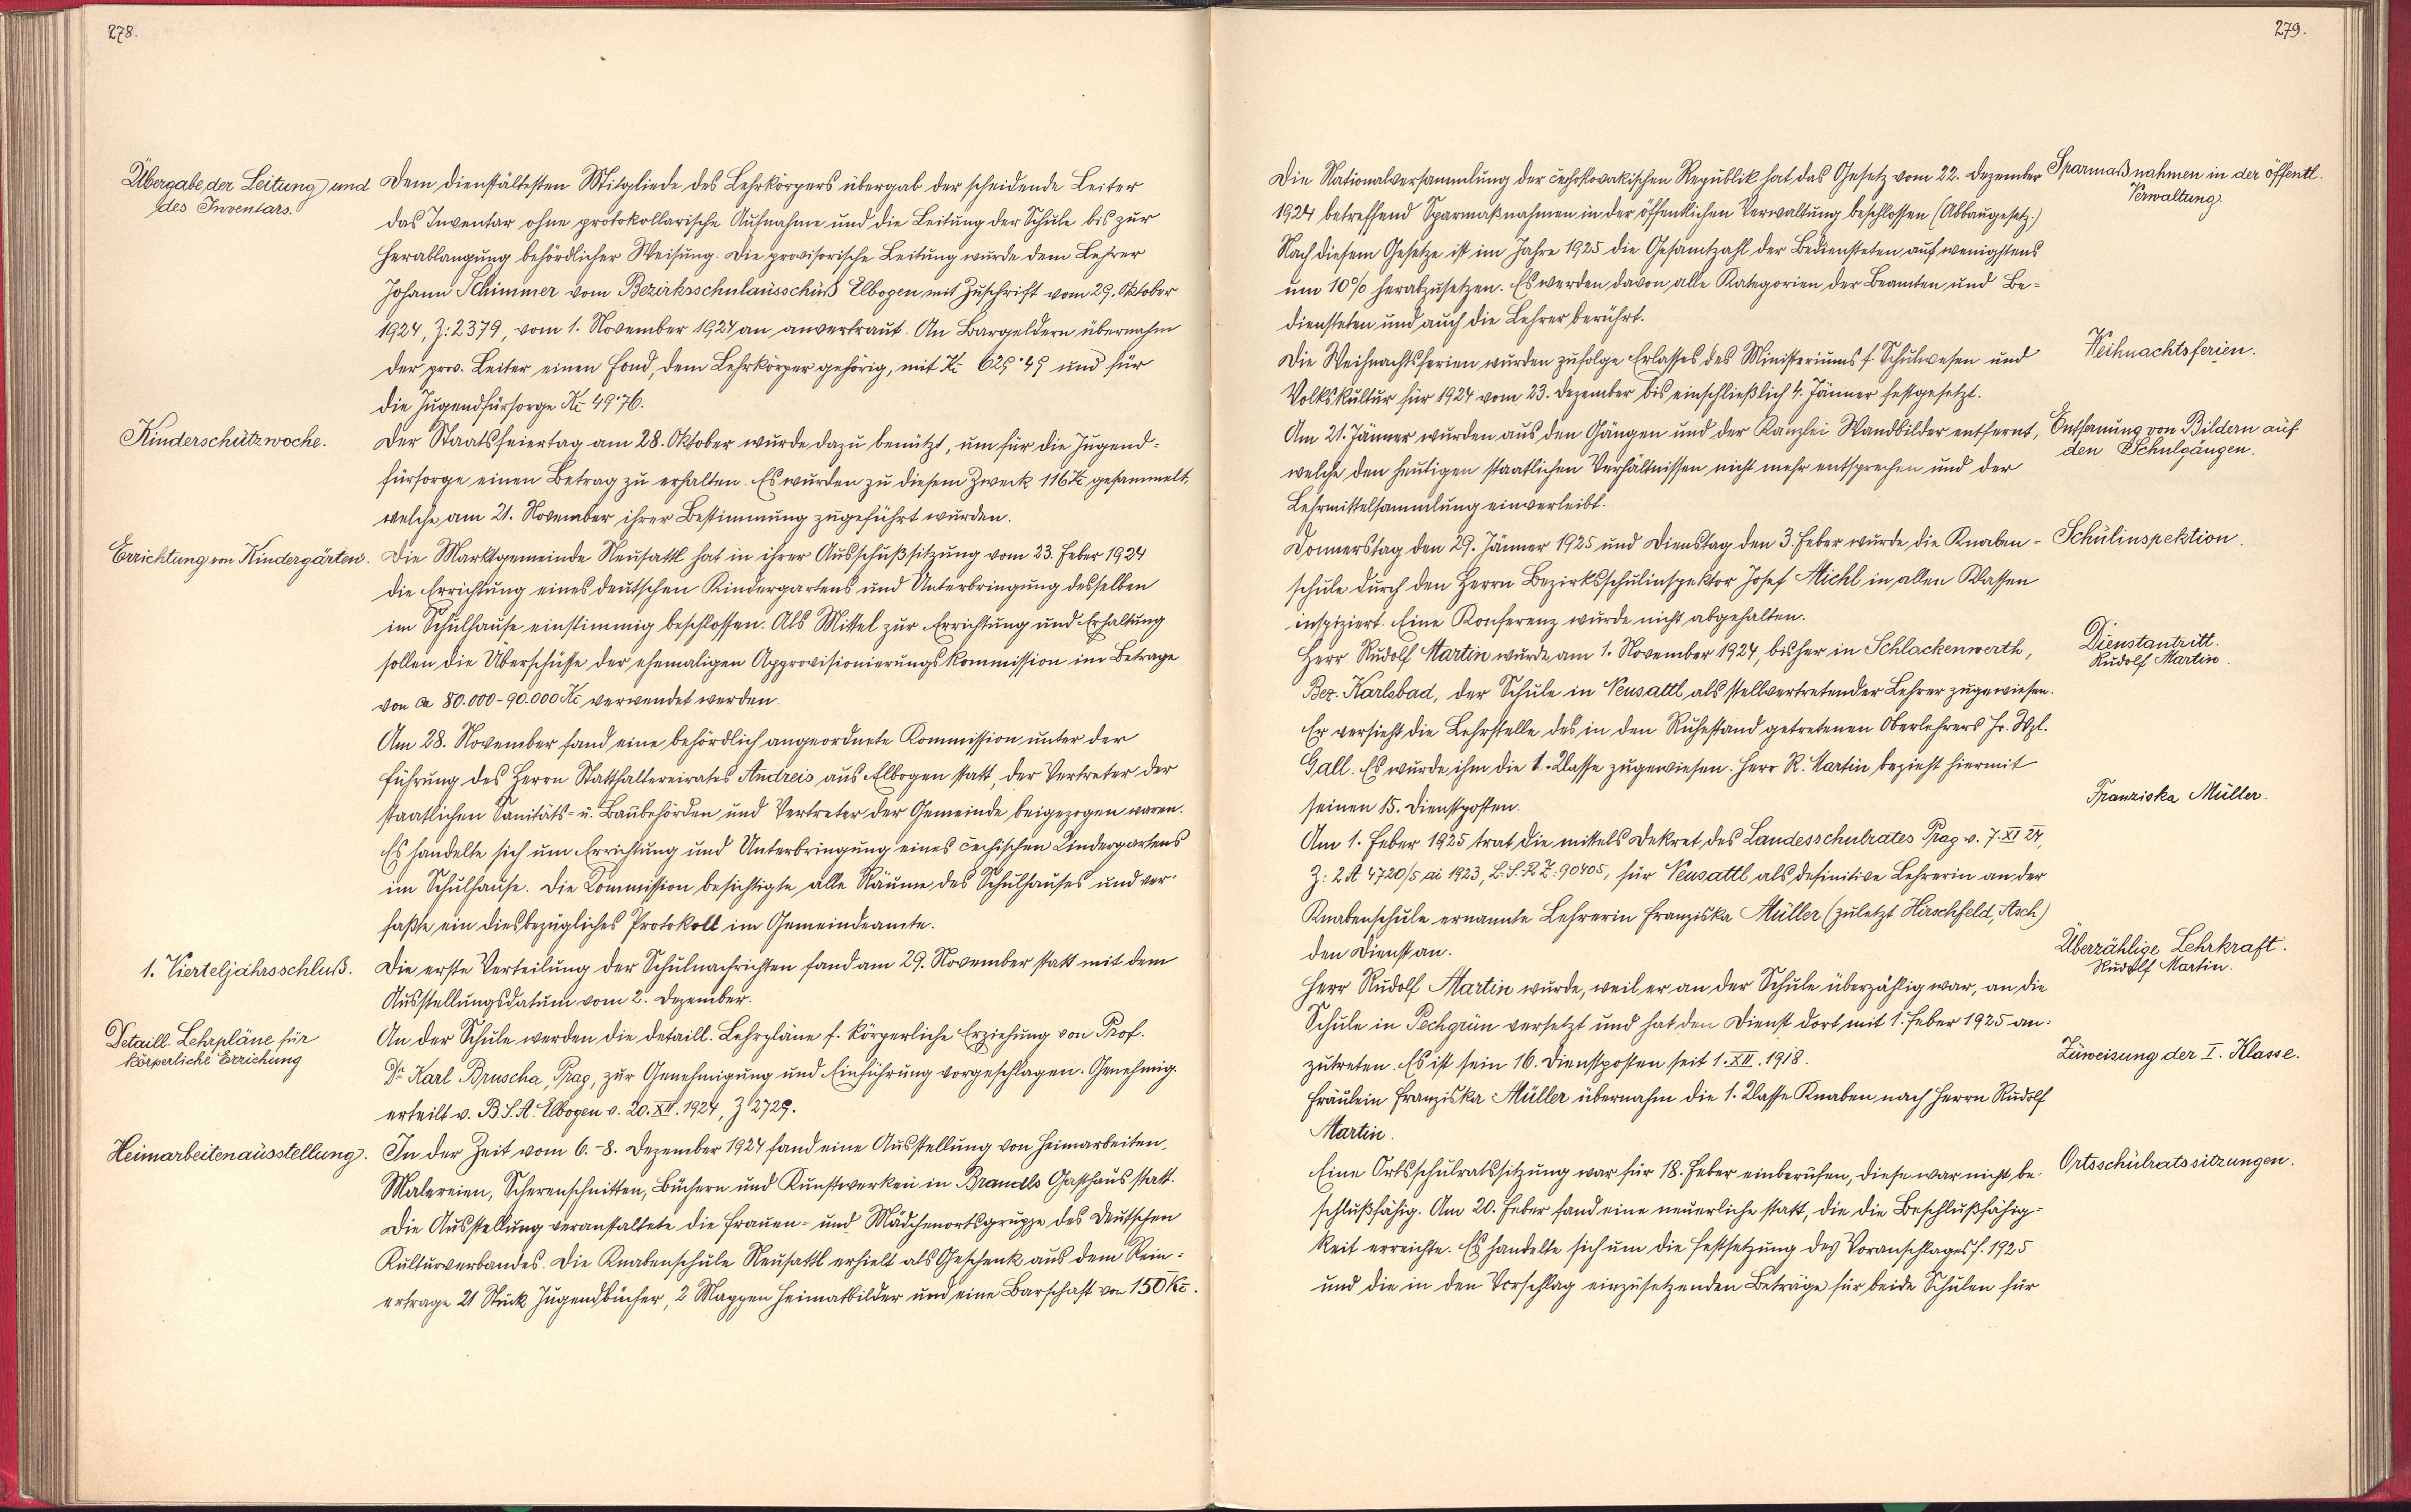 278.
Übergabe der Leitung und
des Inventars.
Dem dienstältesten Mitgliede des Lehrkörpers übergab der scheidende Leiter
das Inventar ohne protokollarische Aufnahme und die Leitung der Schule bis zur
Herablangung behördlicher Weisung. Die provisorische Leitung wurde dem Lehrer
Johann Schimmer vom Bezirksschulausschuß Elbogen mit Zuschrift vom 29. Oktober
1924, Z: 2379, vom 1. November 1924 an anvertraut. An Bargeldern übernahm
der prov. Leiter einen Fond, dem Lehrkörper gehörig, mit Kč 629·49 und für
die Jugendfürsorge Kč 49·76.
Kinderschutzwoche.
Der Staatsfeiertag am 28. Oktober wurde dazu benützt, um für die Jugend-
fürsorge einen Betrag zu erhalten. Es wurden zu diesem Zweck 116 Kč gesammelt,
welche am 21. November ihrer Bestimmung zugeführt wurden.
Errichtung von Kindergärten.
Die Marktgemeinde Neusattl hat in ihrer Ausschußsitzung vom 23. Feber 1924
die Errichtung eines deutschen Kindergartens und Unterbringung desselben
im Schulhause einstimmig beschlossen. Als Mittel zur Errichtung und Erhaltung
sollen die Überschüsse der ehemaligen Approvisionierungskommission im Betrage
von ca 80.000-90.000 Kč verwendet werden.
Am 28. November fand eine behördlich angeordnete Kommission unter der
Führung des Herrn Statthaltereirates Andreis aus Elbogen statt, der Vertreter der
staatlichen Sanitäts- u. Baubehörden und Vertreter der Gemeinde beigezogen waren.
Es handelte sich um Errichtung und Unterbringung eines čechischen Kindergartens
im Schulhause. Die Kommission besichtigte alle Räume des Schulhauses und ver-
faßte ein diesbezügliches Protokoll im Gemeindeamte.
1. Vierteljahrsschluß.
Die erste Verteilung der Schulnachrichten fand am 29. November statt mit dem
Ausstellungsdatum vom 2. Dezember.
Detaill. Lehrpläne für
körperliche Erziehung
An der Schule werden die detaill. Lehrpläne f. körperliche Erziehung von Prof.
Dr Karl Bruscha, Prag, zur Genehmigung und Einführung vorgeschlagen. Genehmig.
erteilt v. B.S.A. Elbogen v. 20. XII. 1924, Z 2729.
Heimarbeitenausstellung.
In der Zeit vom 6.-8. Dezember 1924 fand eine Ausstellung von Heimarbeiten,
Malereien, Scherenschnitten, Büchern und Kunstwerken in Brandls Gasthaus statt.
Die Ausstellung veranstaltete die Frauen- und Mädchenortsgruppe des Deutschen
Kulturverbandes. Die Knabenschule Neusattl erhielt als Geschenk aus dem Rein-
ertrage 21 Stück Jugendbücher, 2 Mappen Heimatbilder und eine Barschaft von 150 Kč.
279.
Die Nationalversammlung der čechoslovakischen Republik hat das Gesetz vom 22. Dezember
1924 betreffend Sparmaßnahmen in der öffentlichen Verwaltung beschlossen (Abbaugesetz.)
Nach diesem Gesetze ist im Jahre 1925 die Gesamtzahl der Bediensteten auf wenigstens
um 10% herabzusetzen. Es werden davon alle Kategorien der Beamten und Be-
diensteten und auch die Lehrer berührt.
Sparmaßnahmen in der öffentl.
Verwaltung.
Die Weihnachtsferien wurden zufolge Erlasses des Ministeriums f. Schulwesen und
Volkskultur für 1924 vom 23. Dezember bis einschließlich 4. Jänner festgesetzt.
Weihnachtsferien.
Am 21. Jänner wurden aus den Gängen und der Kanzlei Wandbilder entfernt,
welche den heutigen staatlichen Verhältnissen nicht mehr entsprechen und der
Lehrmittelsammlung einverleibt.
von Bildern auf
den Schulgängen.
Donnerstag den 29. Jänner 1925 und Dienstag den 3. Feber wurde die Knaben-
schule durch den Herrn Bezirksschulinspektor Josef Michl in allen Klassen
inspiziert. Eine Konferenz wurde nicht abgehalten.
Schulinspektion.
Herr Rudolf Martin wurde am 1. November 1924, bisher in Schlackenwerth,
Bez. Karlsbad, der Schule in Neusattl als stellvertretender Lehrer zugewiesen.
Er versieht die Lehrstelle des in den Ruhestand getretenen Oberlehrers Hr. Wzl.
Gall. Es wurde ihm die 1. Klasse zugewiesen. Herr R. Martin bezieht hiermit
seinen 15. Dienstposten.
Dienstantritt.
Rudolf Martin.
Franziska Müller.
Am 1. Feber 1925 trat die mittels Dekret des Landesschulrates Prag v. 7. XI 24,
Z: 2 A 4720/5 ai 1923, L.S.R. Z. 90405, für Neusattl als definitive Lehrerin an der
Knabenschule ernannte Lehrerin Franziska Müller (zuletzt Hirschfeld, Asch)
den Dienst an.
Überzählige Lehrkraft.
Rudolf Martin.
Herr Rudolf Martin wurde, weil er an der Schule überzählig war, an die
Schule in Pechgrün versetzt und hat den Dienst dort mit 1. Feber 1925 an-
zutreten. Es ist sein 16. Dienstposten seit 1. XII. 1918.
Zuweisung der I. Klasse.
Fräulein Franziska Müller übernahm die 1. Klasse Knaben nach Herrn Rudolf
Martin.
Eine Ortsschulratssitzung war für 18. Feber einberufen, diese war nicht be-
schlußfähig. Am 20. Feber fand eine neuerliche statt, die die Beschlußfähig-
keit erreichte. Es handelte sich um die Festsetzung des Voranschlages f. 1925
und die in den Vorschlag einzusetzenden Beträge für beide Schulen für
Ortsschulratssitzungen.